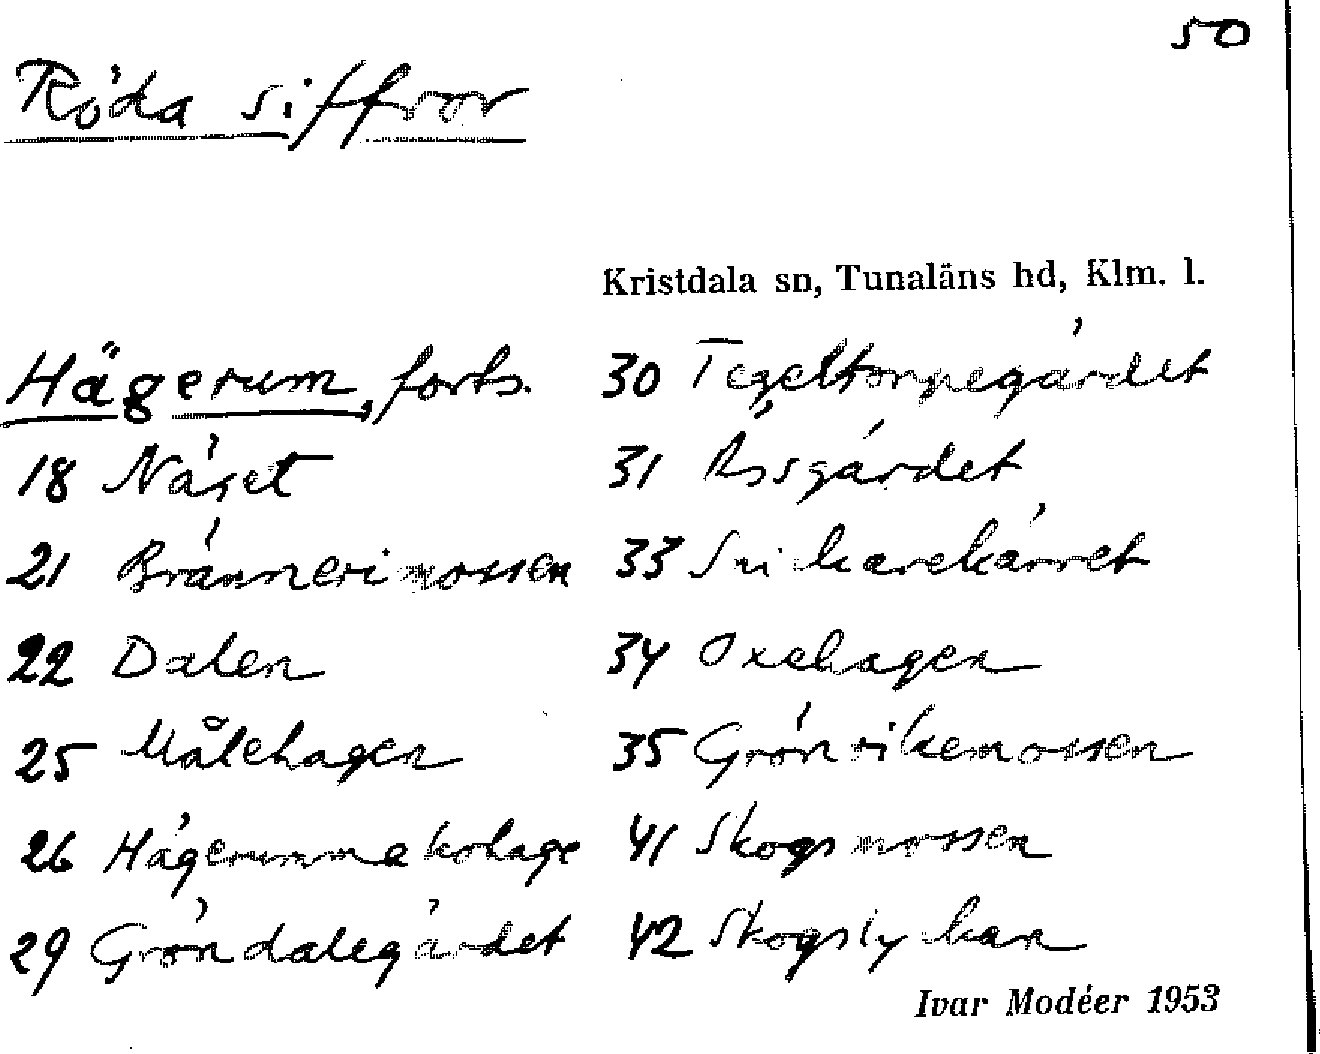 50
Röda siffror
Kristdala sn, Tunaläns hd, Klm. l.
Hägerum, forts.
18 Näset
21 Brännerimossen
22 Dalen
25 Målehagen
26 Hägerumme kohage
29 Gröndalegärdet
30 Tegeltorpegärdet
31 Rösgärdet
33 Snickarekärret
34 Oxehagen
35 Grönvikemossen
41 Skogsmossen
42 Skogslyckan
Ivar Modéer 1953